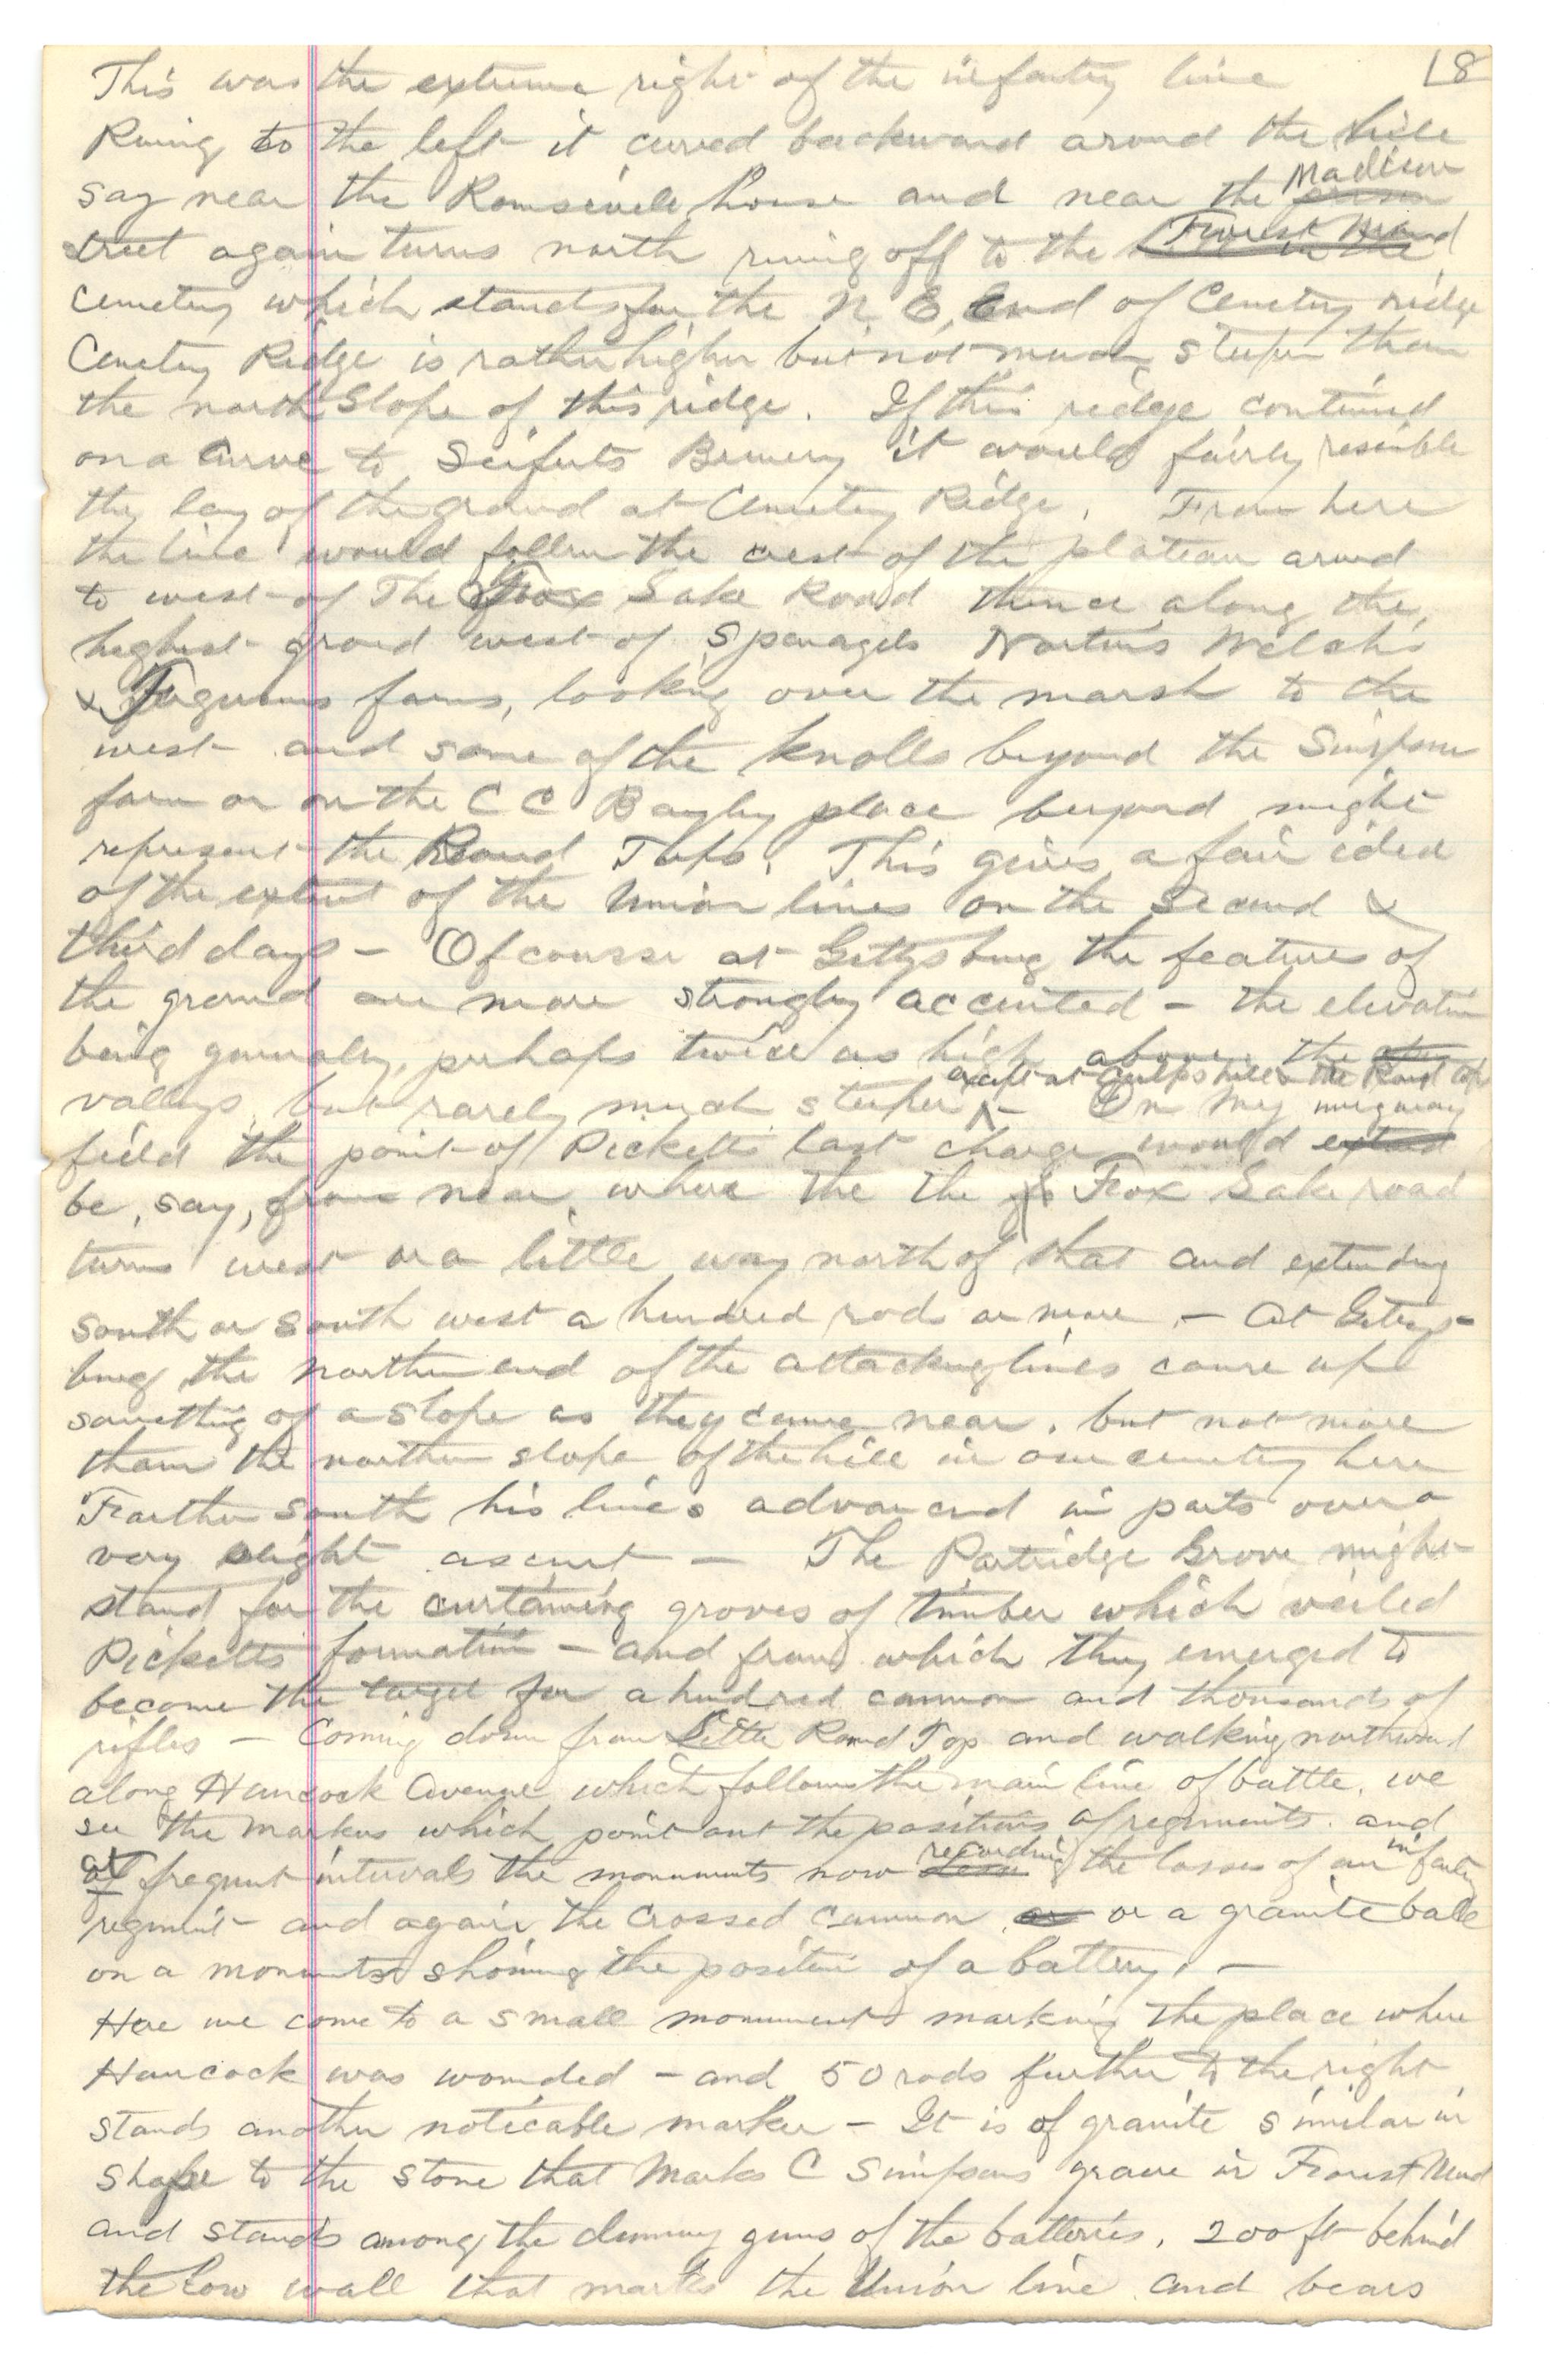 This was the extreme right of the infantry line
18
Runing to the left it curved backward around the hill
say near the house and near the Madison
street again turns north runing off to the Forest Mound
Cemetery which stands for the N. E. End of Cemetery ridge
Cemetery Ridge is rather higher but not much steeper than
the north Slope of this ridge. If this ridge continued
on a curve to Seiferts Brewery it would fairly resemble
the lay of the ground at Cemetery Ridge. From here
the line would follow the crest of the plateau around
to west of The Fox Lake Road thence along the
highest ground west of Sparagels Welch's
& farms, looking over the marsh to the
west and some of the knolls beyond the Simpson
farm or on the C C Bayley place beyond might
represent the Round Tops. This gives a fair idea
of the extent of the Union lines on the Second &
third days - Of course at Gettysburg the features of
the ground are more strongly accented - the elevation
being generally, perhaps twice as high above the
except at Culps hill & the Round tops
valleys, but rarely much steeper - On my imaginary
field the point of Picketts last charge would
be, say, from near where the the Fox Lake road
turns west or a little way north of that and extending
south or south west a hundred rods or more - At Gettys-
burg the northern end of the attacking lines came up
something of a slope as they came near, but not more
than the northern slope of the hill in our cemetery here
Farther South his lines advanced in parts over a
very slight ascent - The Partridge Grove might
stand for the curtaining groves of timber which veiled
Picketts formation - and from which they emerged to
become the target for a hundred cannon and thousands of
rifles - Coming down from Little Round Top and walking northward
along Hancock Avenue which follows the main line of battle, we
see the markers which point out the positions of regiments. and
at frequent intervals the monuments now recording the losses of an infantry
regiment - and again the crossed cannon or a granite ball
on a monument showing the position of a battery. -
Here we come to a small monument marking the place where
Hancock was wounded - and 50 rods further to the right
stands another noticable marker - It is of granite similar in
shape to the stone that Marks C Simpsons grave in Forest Mound
and stands among the dummy guns of the batteries, 200 ft behind
the low wall that marks the Union line and bears